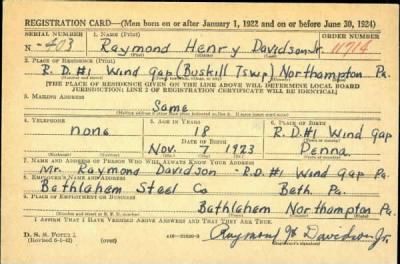 REGISTRATION CARD—(Men born on or after January 1, 1922 and on or before June 30, 1924)
SERIAL NUMBER 1. NAME (Print) ORDER NUMBER
N-403 Raymond Henry Davidson Jr. 11714
2. PLACE OF RESIDENCE (Print)
R.D.#1 Wind Gap (Bushkill Twsp) Northampton Pa.
[THE PLACE OF RESIDENCE GIVEN ON THE LINE ABOVE WILL DETERMINE LOCAL BOARD
JURISDICTION; LINE 2 OF REGISTRATION CERTIFICATE WILL BE IDENTICAL]
3. MAILING ADDRESS
Same
4. TELEPHONE 5. AGE IN YEARS
none 18 R.D.#1 Wind Gap
DATE OF BIRTH
Nov. 7 1923 Penna.
7. NAME AND ADDRESS OF PERSON WHO WILL ALWAYS KNOW YOUR ADDRESS
Mr. Raymond Davidson - R.D.#1 Wind Gap Pa.
8. EMPLOYER'S NAME AND ADDRESS
Bethlahem Steel Co Beth. Pa.
Bethlahem Northampton Pa.
I AFFIRM THAT I HAVE VERIFIED ABOVE ANSWERS AND THAT THEY ARE TRUE.
D. S. S. Form 1
(Revised 6-1-42) (over) Raymond H Davidson Jr.